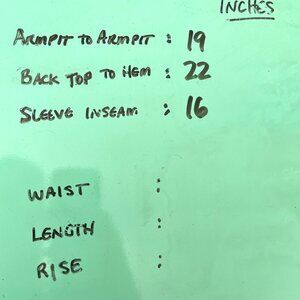 INCHES
ARMPIT TO ARMPIT : 19
BACK TOP TO HEM : 22
SLEEVE INSEAM : 16
WAIST :
LENGTH :
RISE :